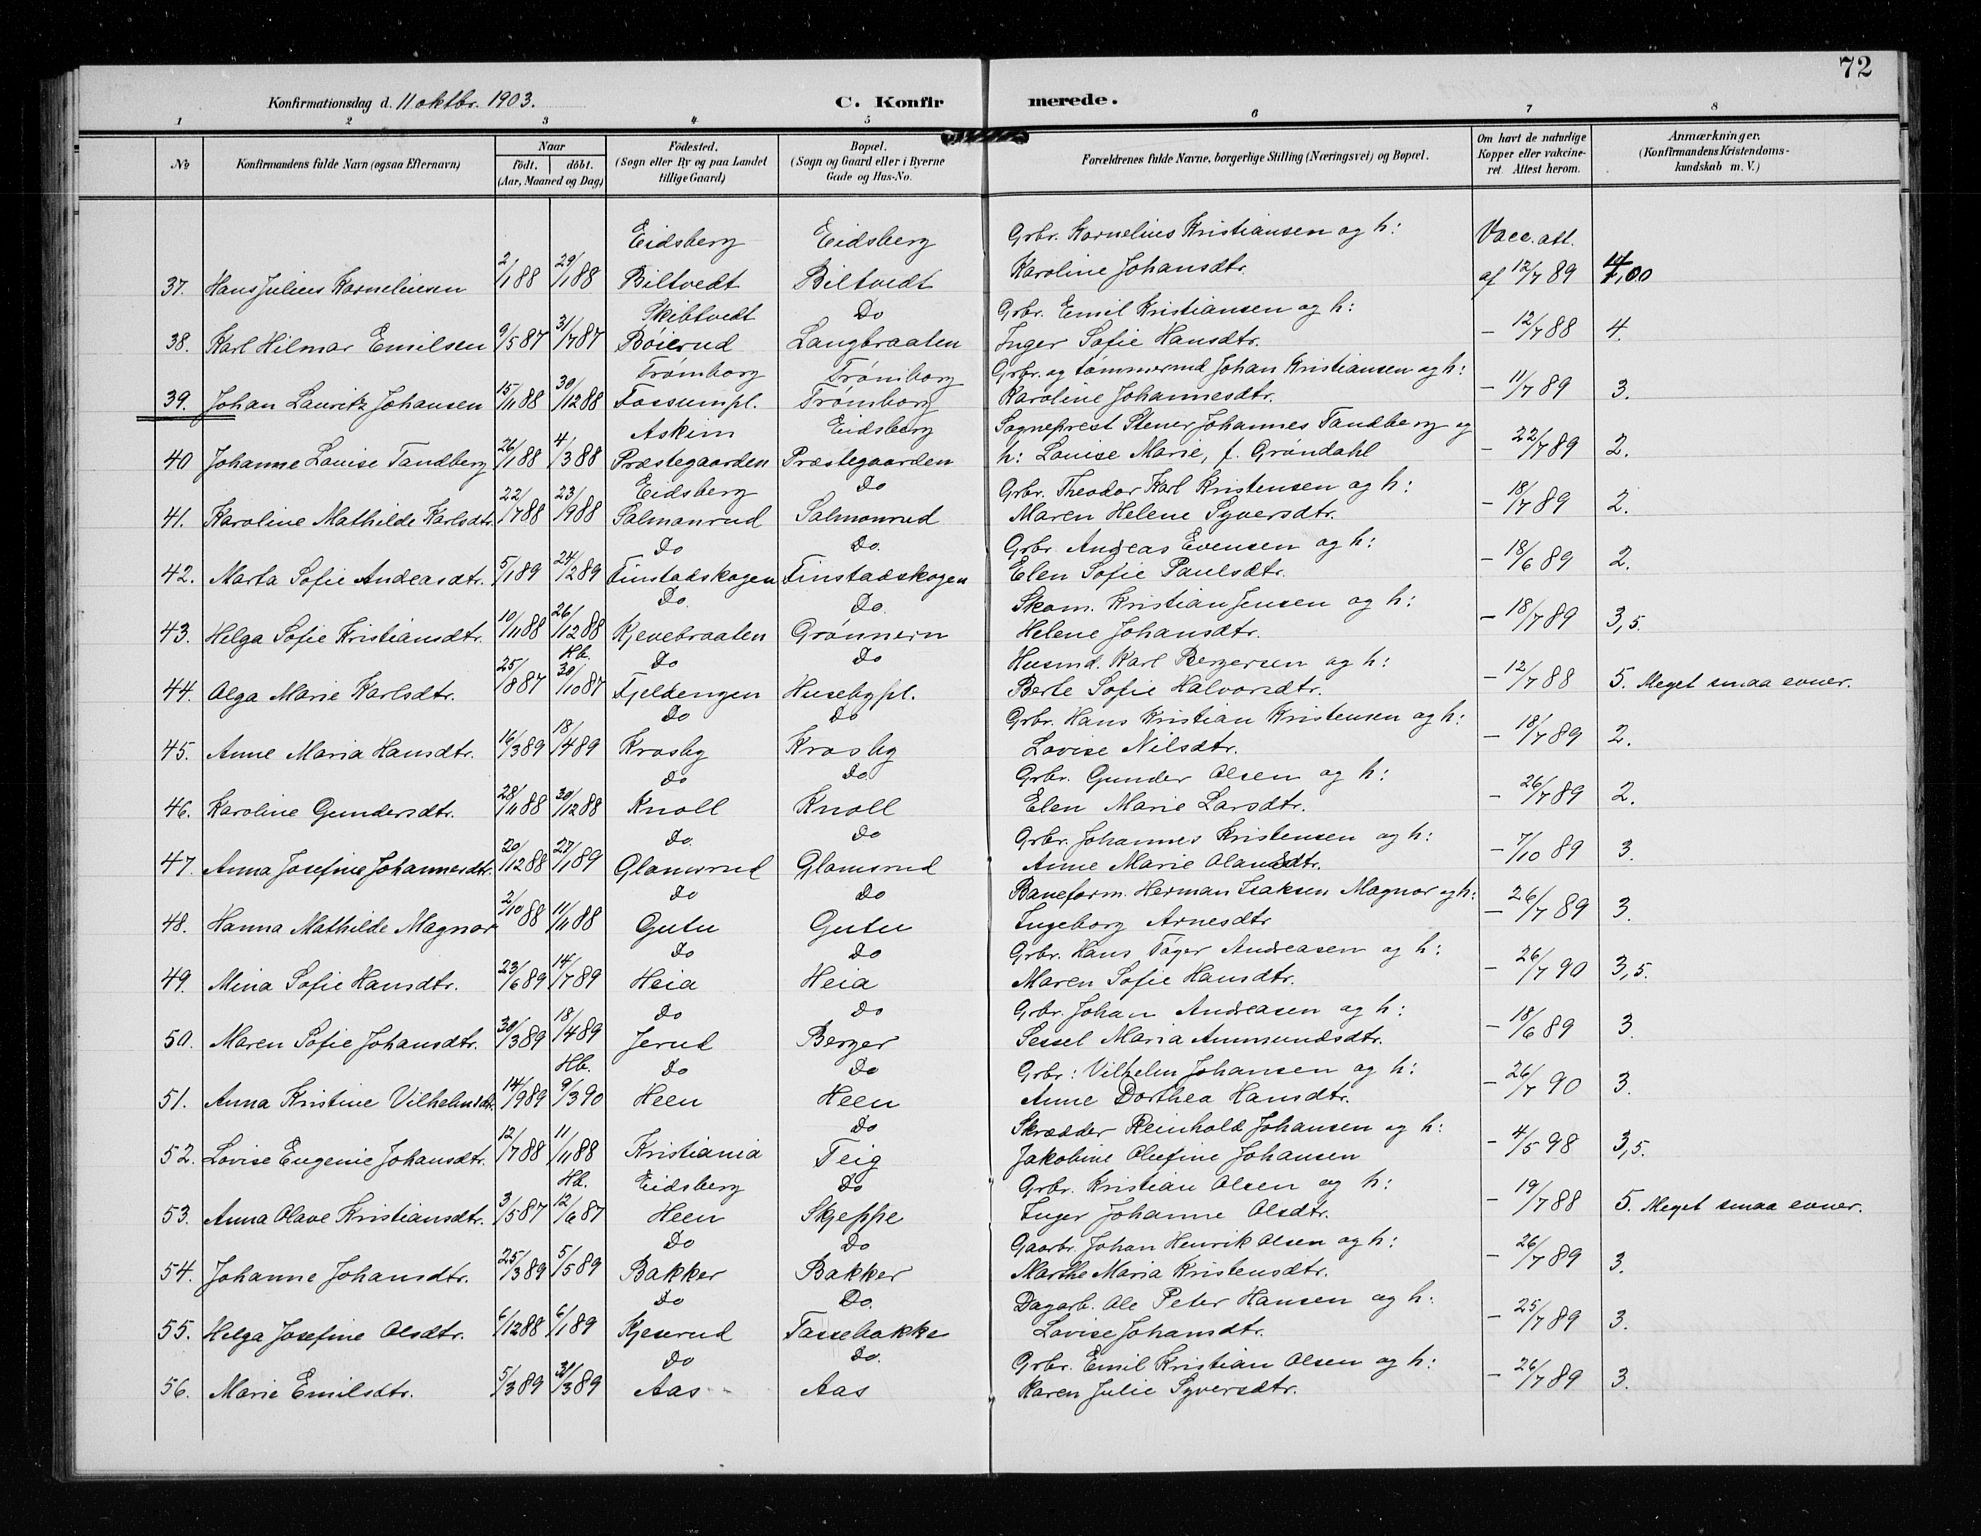 72
Konfirmationsdag d. 11 oktbr. 1903. C. Konfirmerede.
1 2 3 4 5 6 7 8
No Konfirmandens fulde Navn (ogsaa Efternavn) Naar født. døbt. (Aar, Maaned og Dag) Fødested. (Sogn eller By og paa Landet tillige Gaard) Bopæl. (Sogn og Gaard eller i Byerne Gade og Hus-No. Forældrenes fulde Navne, borgerlige Stilling (Næringsvei) og Bopæl. Om havt de naturlige Kopper eller vakcineret Attest herom. Anmærkninger. (Konfirmandens Kristendomskundskab m. V.)
Eidsberg Eidsberg Grbr. Kornelius Kristiansen og h: Vacc. att.
37. Hans Julius Korneliusen 2/1 88 29/1 88 Biltvedt Biltvedt Karoline Johansdtr. af 12/7 89
Skibtvedt Do Grbr. Emil Kristiansen og h:
38. Karl Hilmar Emilsen 9/5 87 31/7 87 Bøierud Langbraaten Inger Sofie Hansdtr. - 12/7 88 4.
Trømborg Trømborg Grbr. og tømmermd Johan Kristiansen og h:
39. Johan Lauritz Johansen 15/11 88 30/12 88 Fossumpl. Trømborg Karoline Johannesdtr. - 11/7 89 3.
Askim Eidsberg Sogneprest Stener Johannes Tandberg og
40 Johanne Louise Tandberg 26/1 88 4/3 88 Præstegaarden Præstegaarden h: Louise Marie, f. Grøndahl - 22/7 89 2.
Eidsberg Do Grbr. Theodor Karl Kristensen og h:
41. Karoline Mathilde Karlsdtr. 22/7 88 23/9 88 Salmonrud Salmonrud Maren Helene Syversdtr. - 18/7 89 2.
Do Do. Grbr Andreas Evensen og h:
42. Marta Sofie Andreasdtr. 5/1 89 24/2 89 Finstadskogen Finstadskogen Elen Sofie Paulsdtr. - 18/6 89 2.
Do. Do. Skom. Kristian Jensen og h:
43. Helga Sofie Kristiansdtr. 10/11 88 26/12 88 Kjevebraaten Grønnern Helene Johansdtr. - 18/7 89 3,5.
Hb. Do Do Husmd. Karl Bergersen og h:
44. Olga Marie Karlsdtr. 25/8 87 30/10 87 Fjeldengen Husebypl. Berte Sofie Halvorsdtr. - 12/7 88 5. Meget smaa evner.
Do Do Grbr. Hans Kristian Kristensen og h:
45. Anne Maria Hansdtr. 16/3 89 18/4 89 Krosby Krosby Lovise Nilsdtr. - 18/7 89 2.
Do Do Grbr. Gunder Olsen og h:
46. Karoline Gundersdtr. 28/11 88 30/12 88 Knoll Knoll Elen Marie Larsdtr. - 26/7 89 2.
Do. Do Grbr. Johannes Kristensen og h:
47. Anna Josefine Johannesdtr. 20/12 88 27/1 89 Glamsrud Glamsrud Anne Marie - 7/10 89 3.
Do Do Baneform. Herman Isaksen Magnor og h:
48. Hanna Mathilde Magnor 2/10 88 11/11 88 Gutu Gutu Ingeborg Arnesdtr - 26/7 89 3.
Do Do Grbr. Hans Tøger Andreasen og h:
49. Mina Sofie Hansdtr. 23/6 89 14/7 89 Heia Heia Maren Sofie Hansdtr. - 26/7 90 3,5.
Do Do Grbr. Johan Andreasen og h:
50. Maren Sofie Johansdtr. 30/3 89 18/4 89 Jerud Berger Sessel Maria Ammundsdtr. - 18/6 89 3.
Hb. Do Do Grbr: Vilhelm Johansen og h:
51. Anna Kristine Vilhelmsdtr. 14/9 89 9/3 90 Heen Heen Anne Dorthea Hansdtr. - 26/7 90 3.
Do Skrædder Reinhold Johansen og h:
52. Lovise Eugenie Johansdtr. 12/7 88 11/11 88 Kristiania Teig Jakobine Olefine Johansen - 4/5 98 3,5.
Hb. Eidsberg Do Grbr. Kristian Olsen og h:
53. Anna Olave Kristiansdtr. 3/5 87 12/6 87 Heen Skjeppe Inger Johanne Olsdtr. - 19/7 88 5. Meget smaa evner.
Do Do Gaarbr. Johan Henrik Olsen og h:
54. Johanne Johansdtr. 25/3 89 5/5 89 Bakker Bakker Marthe Maria Kristensdtr. - 26/7 89 3.
Do Do. Dagarb. Ole Peter Hansen og h:
55. Helga Josefine Olsdtr. 6/12 88 6/1 89 Kjeserud Tassebakke Lovise Johansdtr. - 25/7 89 3.
Do Do. Grbr. Emil Kristian Olsen og h:
56. Marie Emilsdtr. 5/3 89 31/3 89 Aas Aas Karen Julie Syversdtr. - 26/7 89 3.